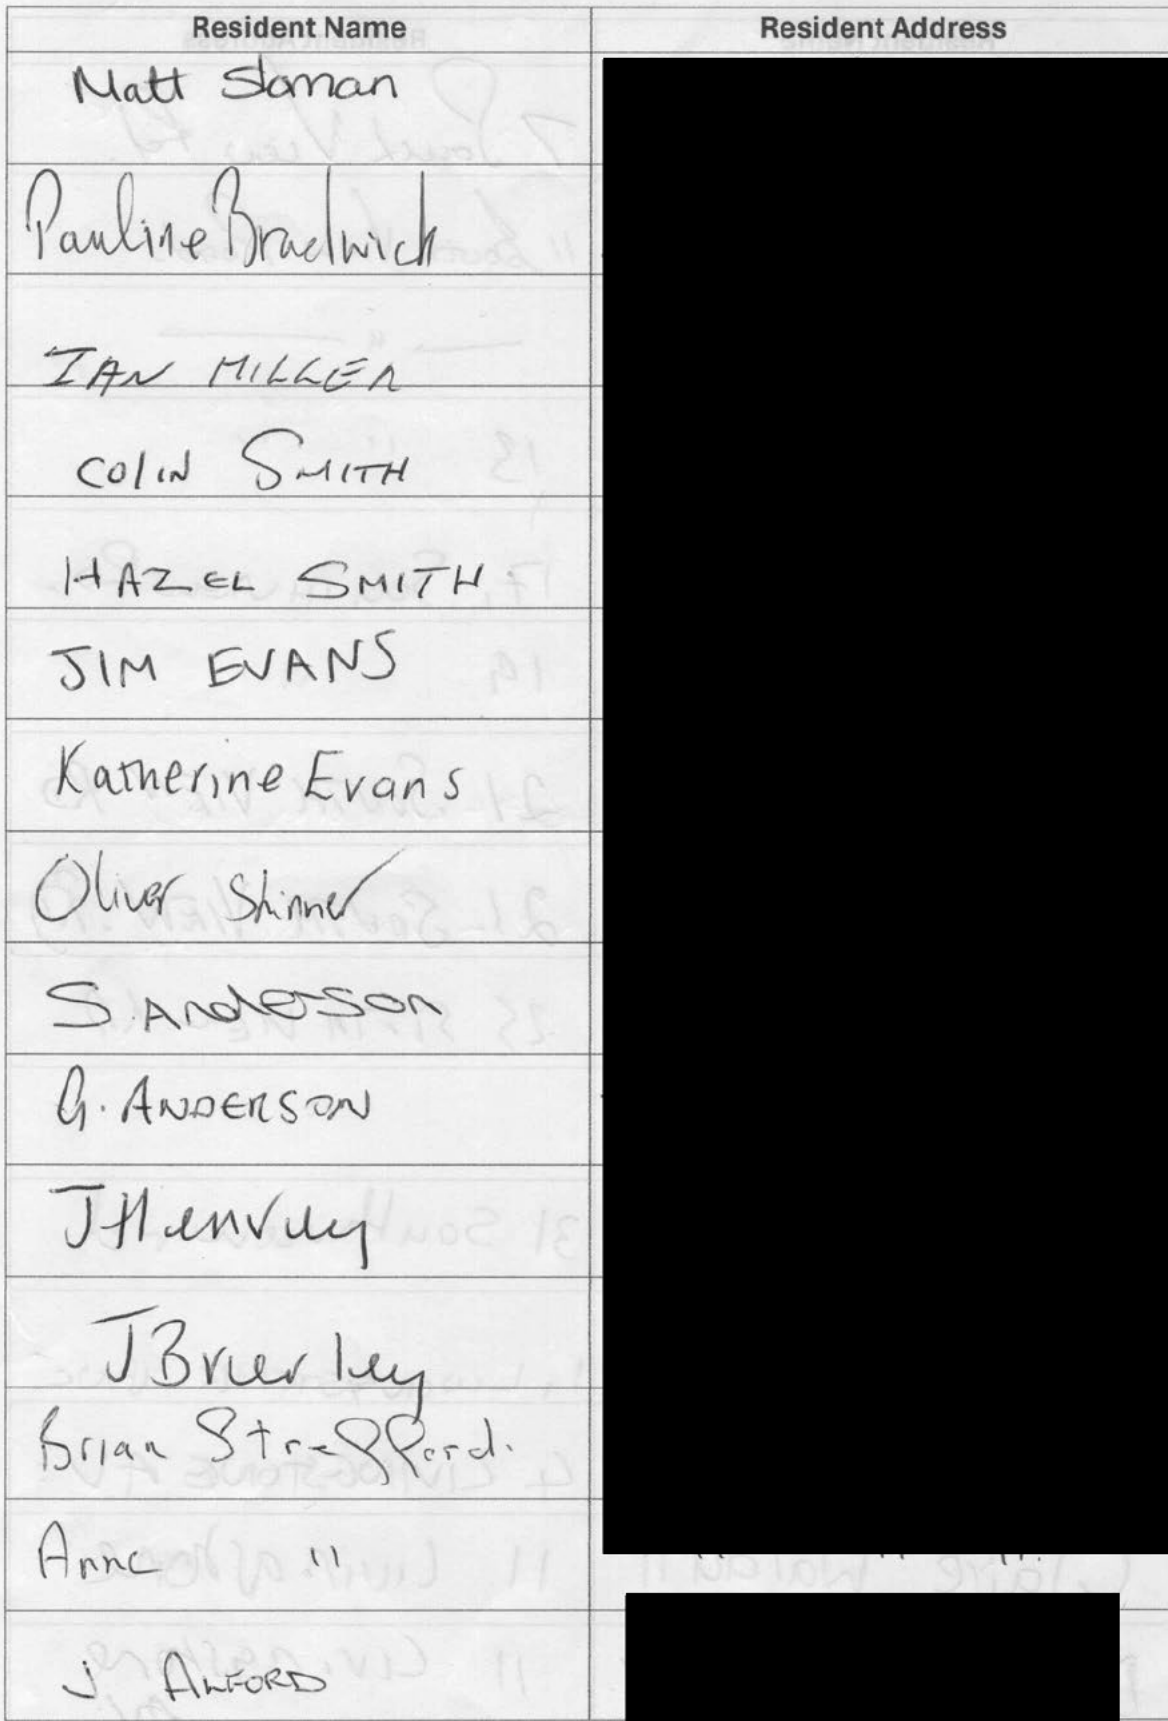 Resident Name Resident Address
Matt Sloman
Pauline Bradwick
IAN MILLER
COLIN SMITH
HAZEL SMITH.
JIM EVANS
Katherine Evans
Oliver Skinner
S. Anderson
G. ANDERSON
J Henvey
J Brierley
Brian Strafford.
Anne "
" " ".
J ALFORD